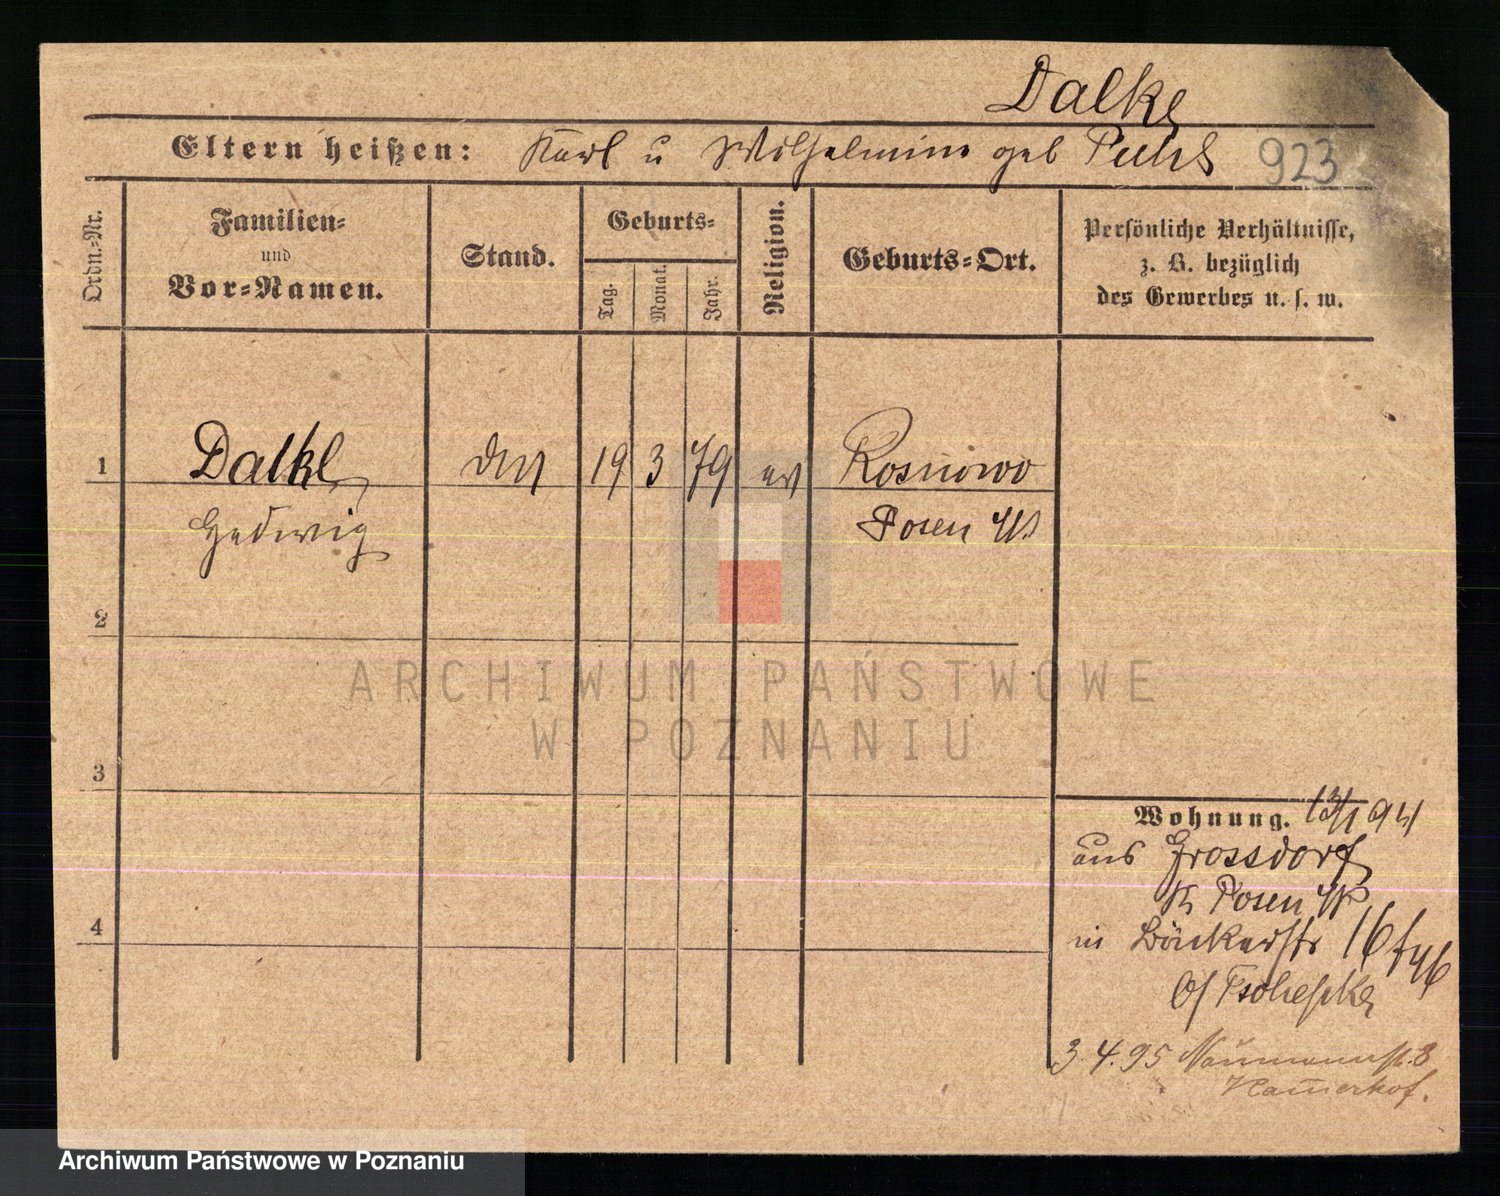 Dalke
Eltern heißen: Karl u Wilhelmine geb Puhl 923
Ordn.-Nr.
Familien-
und
Vor-Namen.
Stand.
Geburts-
Tag.
Monat.
Jahr.
Religion.
Geburts-Ort.
Persönliche Verhältnisse,
z. B. bezüglich
des Gewerbes u. s. w.
1 Dalke 19 3 79 ev Rosnowo
Hedwig Posen W
2
3
4
Wohnung. 13/1 94
aus Grossdorf
K Posen W
in Bäckerstr 16
b/ Tschepke
3.4.95 Naumannst. 8
ARCHIWUM PAŃSTWOWE
W POZNANIU
Archiwum Państwowe w Poznaniu